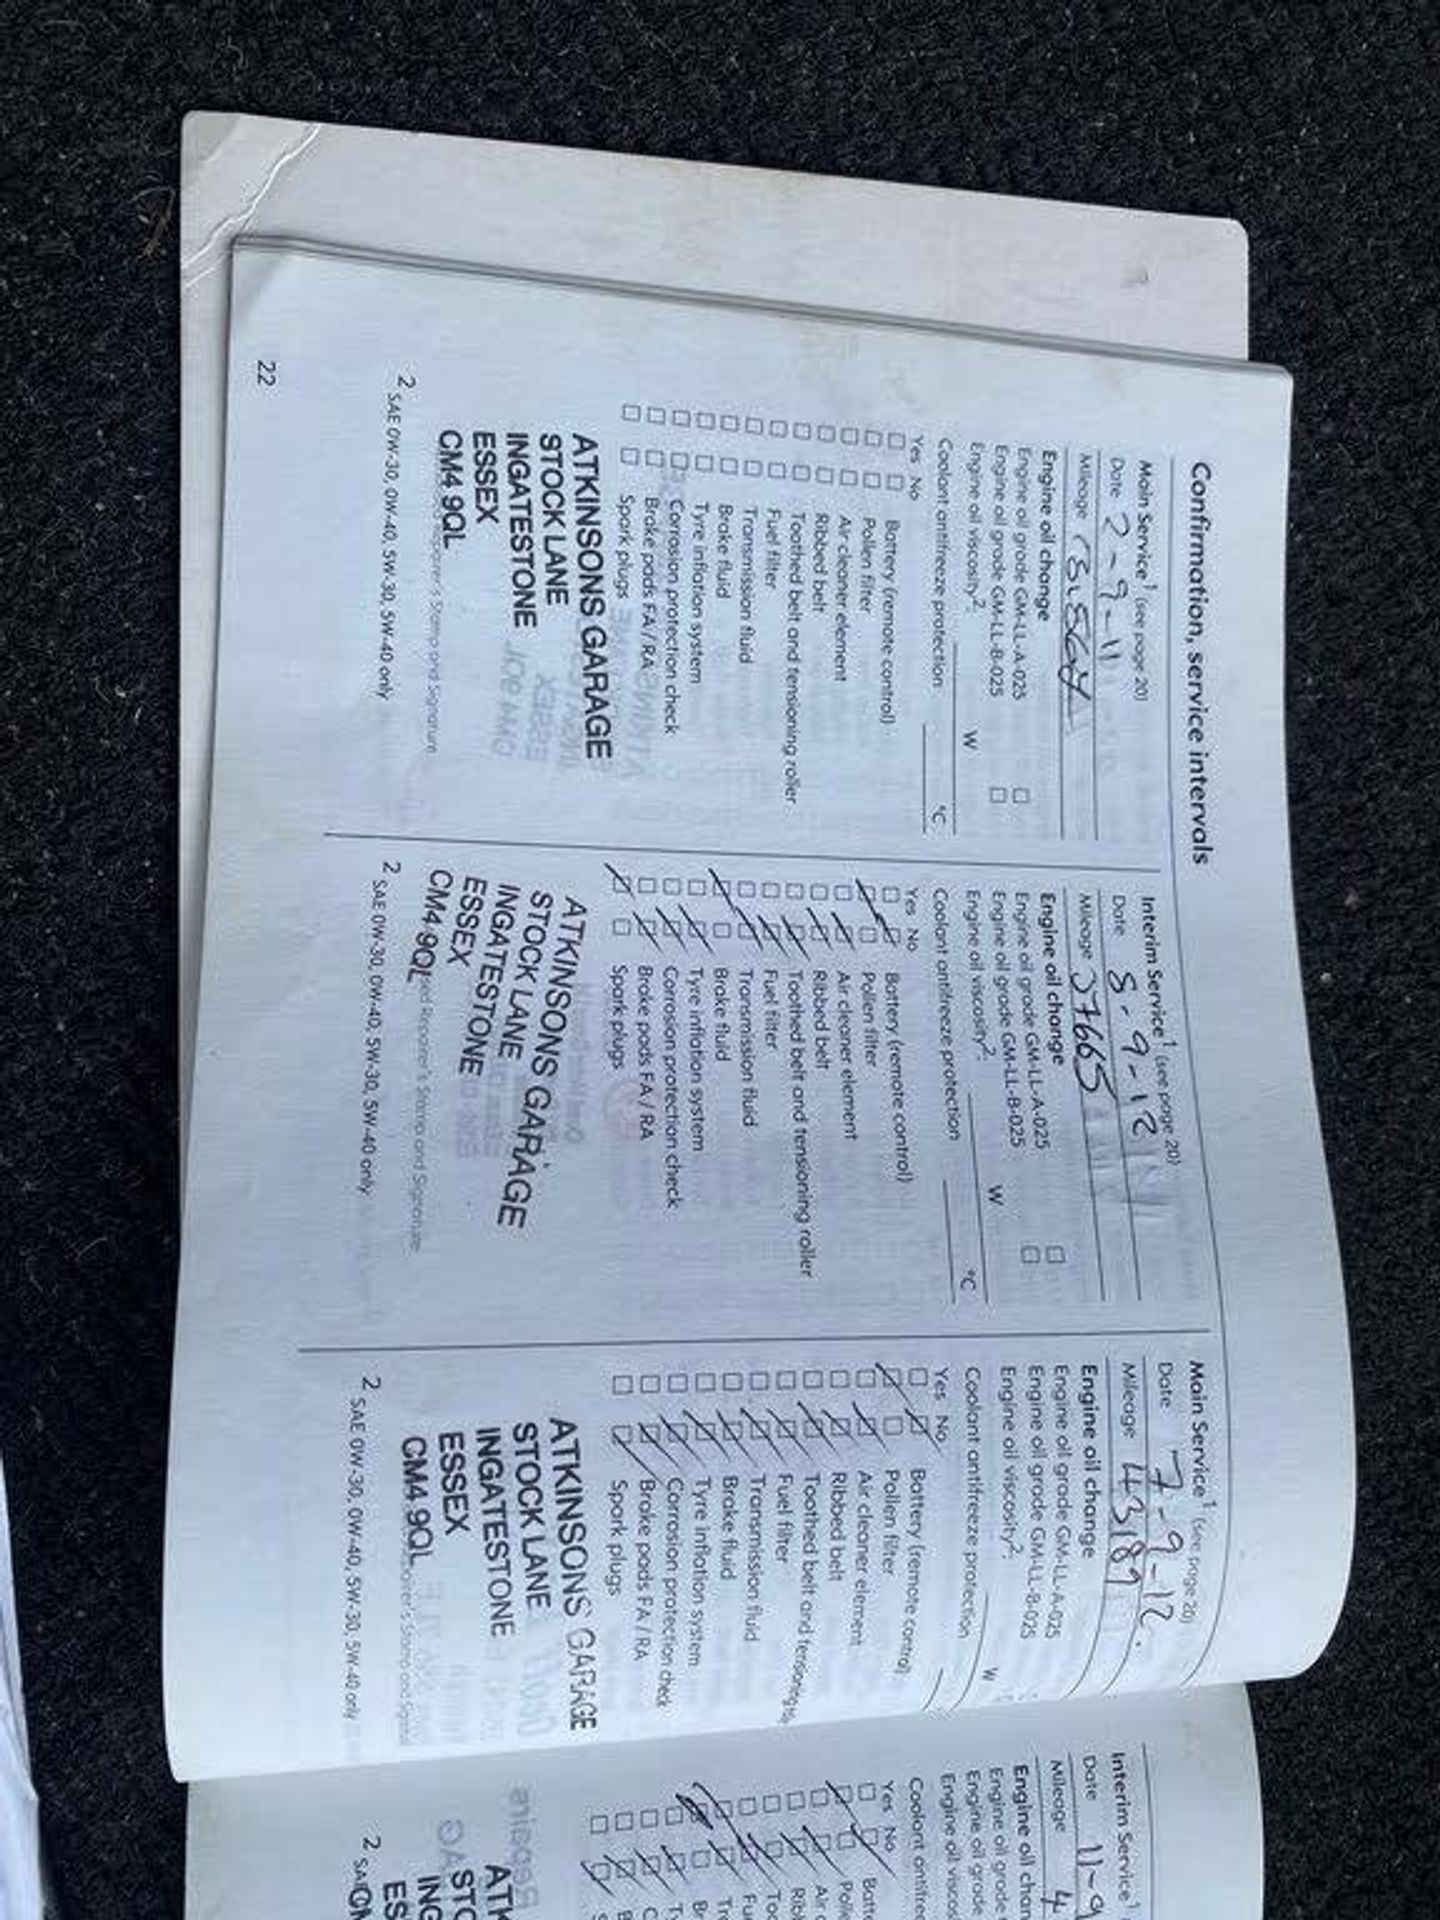 Confirmation, service intervals
Main Service¹ (see page 20)
Date 2-9-11
Mileage
Engine oil change
Engine oil grade GM-LL-A-025
Engine oil grade GM-LL-B-025
Engine oil viscosity²: W
Coolant antifreeze protection °C
Yes No
Battery (remote control)
Pollen filter
Air cleaner element
Ribbed belt
Toothed belt and tensioning roller
Fuel filter
Transmission fluid
Brake fluid
Tyre inflation system
Corrosion protection check
Brake pads FA / RA
Spark plugs
ATKINSONS GARAGE
STOCK LANE
INGATESTONE
ESSEX
CM4 9QL
Repairer's Stamp and Signature
2 SAE 0W-30, 0W-40, 5W-30, 5W-40 only
22
Interim Service¹ (see page 20)
Date 8-9-12
Mileage 37665
Engine oil change
Engine oil grade GM-LL-A-025
Engine oil grade GM-LL-B-025
Engine oil viscosity²: W
Coolant antifreeze protection °C
Yes No
Battery (remote control)
Pollen filter
Air cleaner element
Ribbed belt
Toothed belt and tensioning roller
Fuel filter
Transmission fluid
Brake fluid
Tyre inflation system
Corrosion protection check
Brake pads FA / RA
Spark plugs
ATKINSONS GARAGE
STOCK LANE
INGATESTONE
ESSEX
CM4 9QL
Repairer's Stamp and Signature
2 SAE 0W-30, 0W-40, 5W-30, 5W-40 only
Main Service¹ (see page 20)
Date 7-9-12.
Mileage 43189
Engine oil change
Engine oil grade GM-LL-A-025
Engine oil grade GM-LL-B-025
Engine oil viscosity²: W
Coolant antifreeze protection
Yes No
Battery (remote control)
Pollen filter
Air cleaner element
Ribbed belt
Toothed belt and tensioning
Fuel filter
Transmission fluid
Brake fluid
Tyre inflation system
Corrosion protection check
Brake pads FA / RA
Spark plugs
ATKINSONS GARAGE
STOCK LANE
INGATESTONE
ESSEX
CM4 9QL
Stamp and
2 SAE 0W-30, 0W-40, 5W-30, 5W-40 only
Interim Service¹
Date 11-9
Mileage 4
Engine oil chan
Engine oil grade
Engine oil grade
Engine oil viscos
Coolant antifree
Yes No
Batt
Polle
Air c
Ribb
Too
Fue
Tra
Br
T
C
B
S
ATK
STO
ING
ES
CM
2 SA